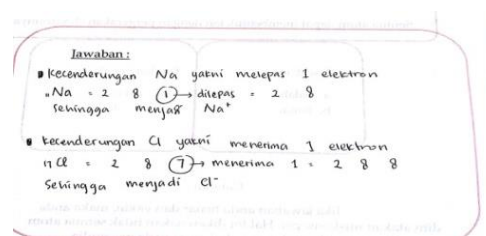 Jawaban :
Kecenderungan Na yakni melepas 1 elektron
₁₁Na = 2 8 1 → dilepas = 2 8
sehingga menjadi Na⁺
Kecenderungan Cl yakni menerima 1 elektron
17 Cl = 2 8 7 → menerima 1 = 2 8 8
Sehingga menjadi Cl⁻